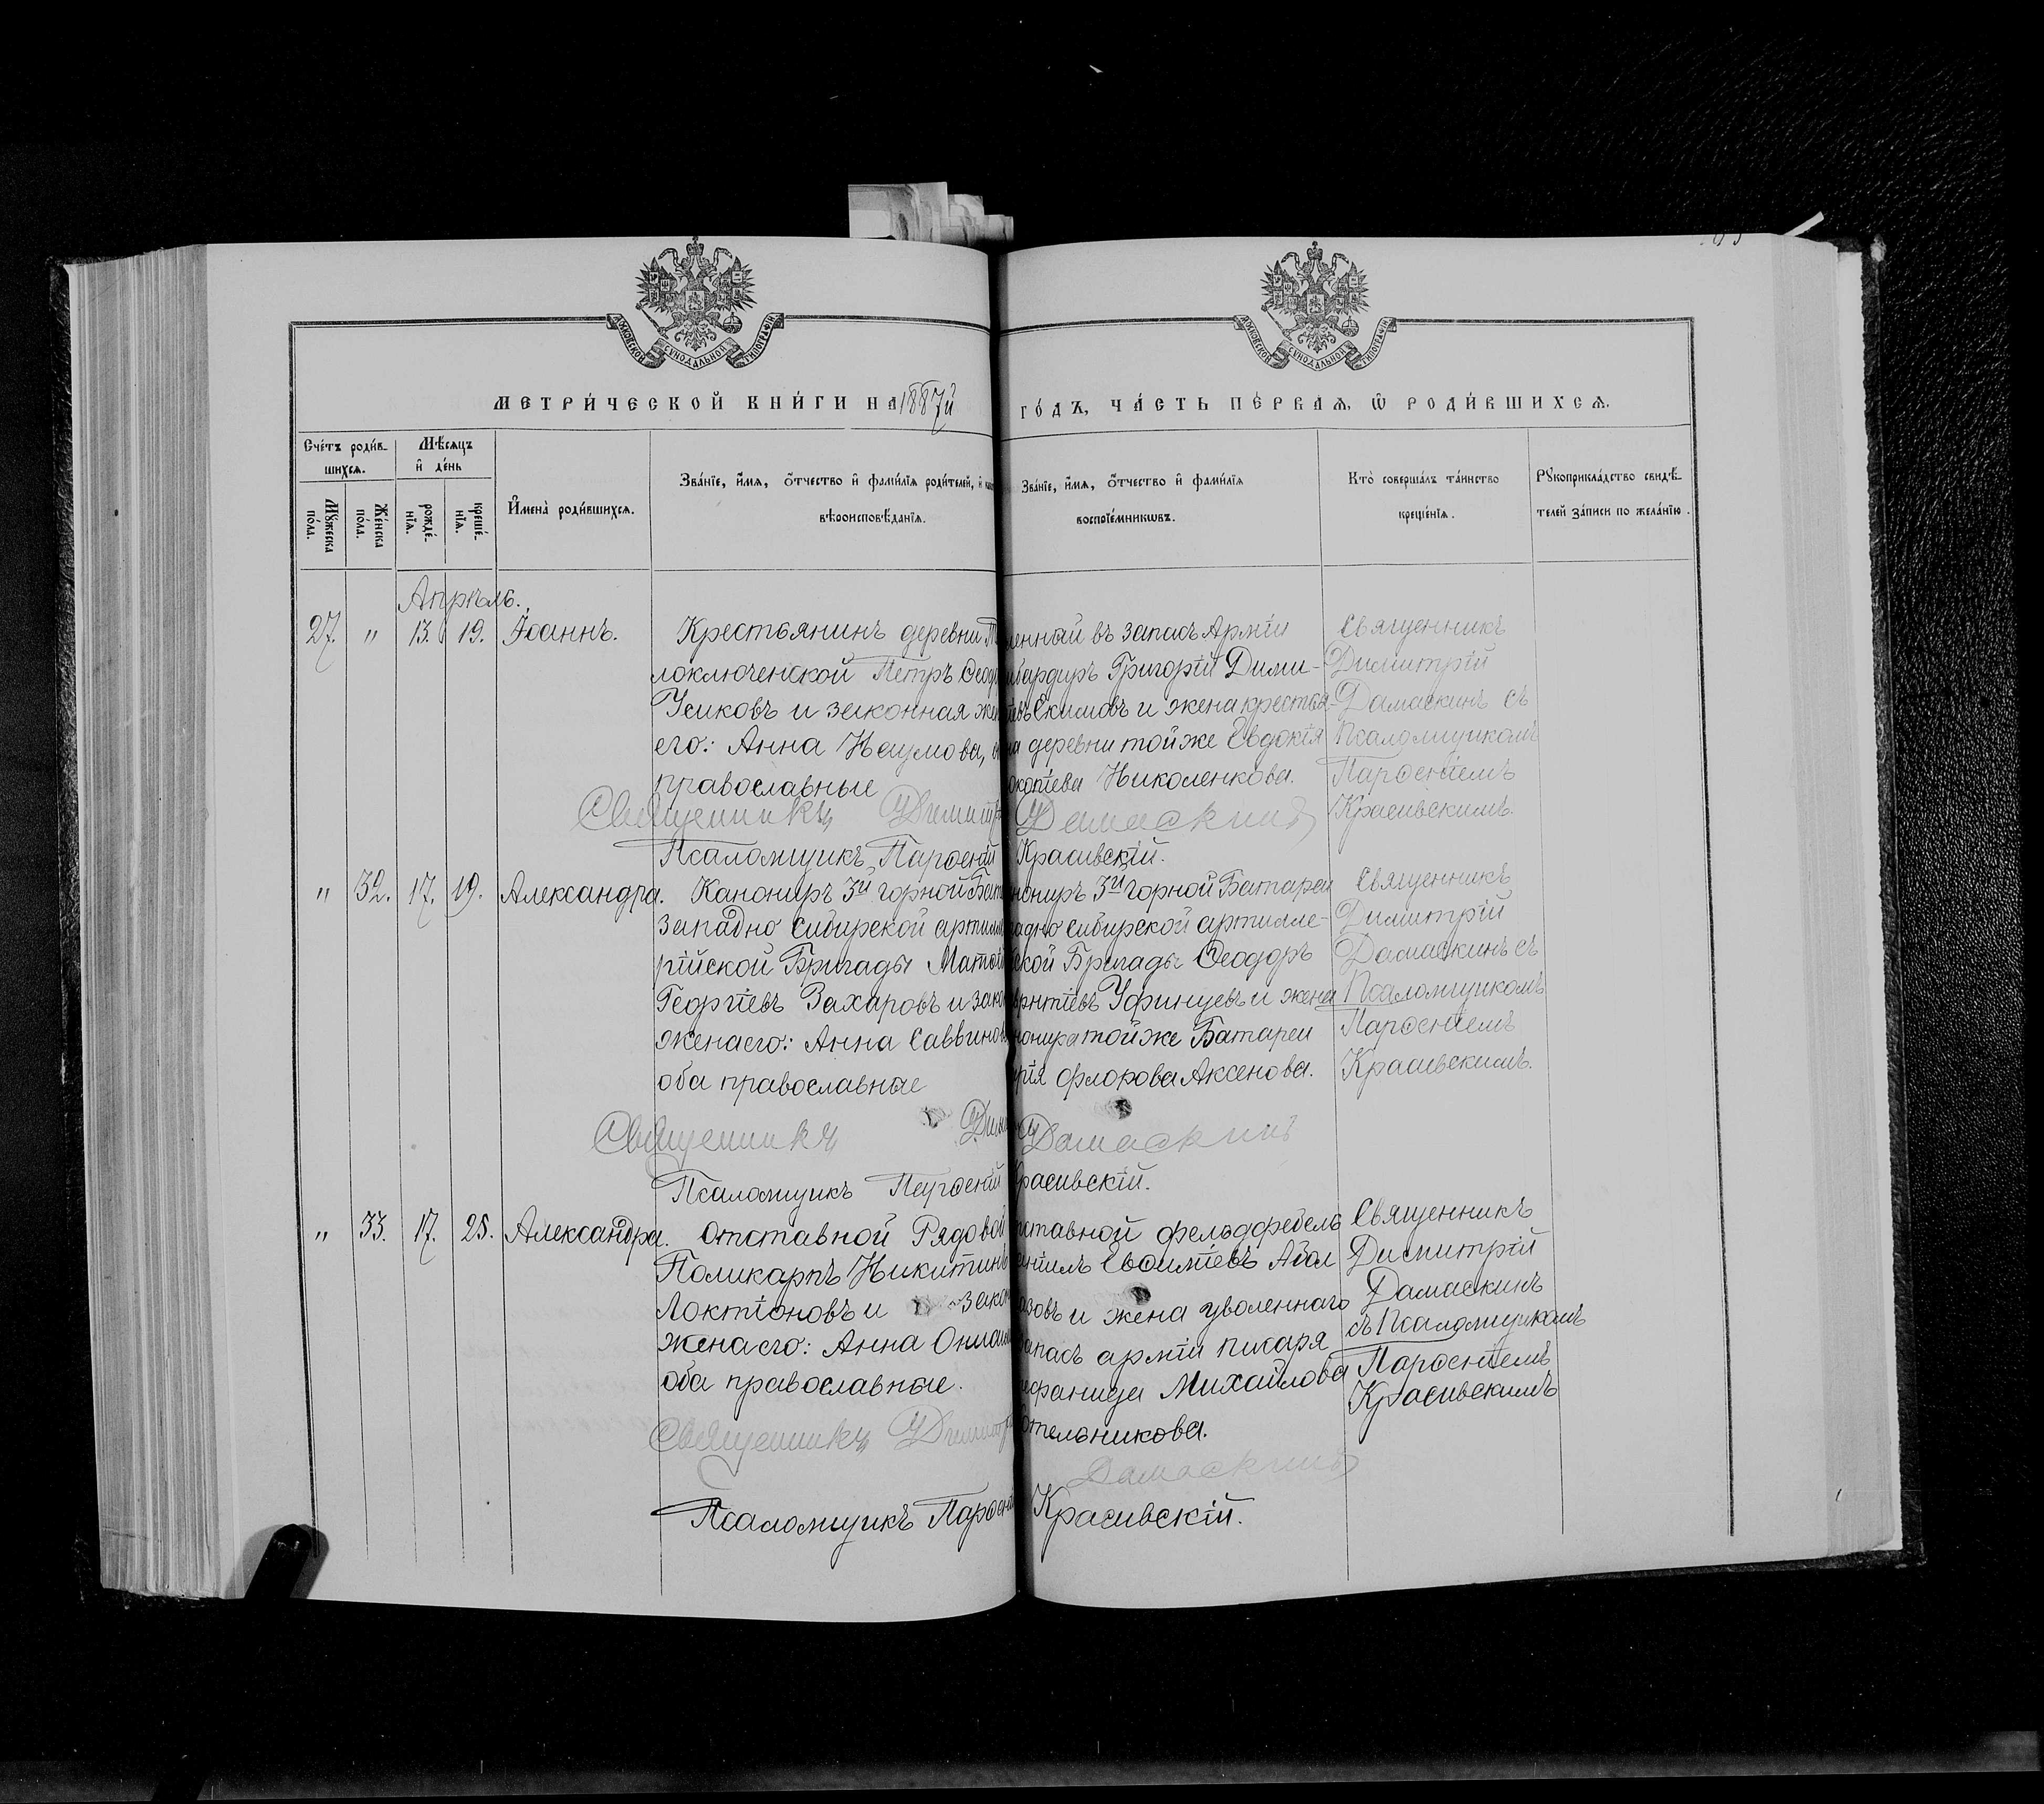 МОСКОВСКОЙ СѴНОДАЛЬНОЙ ТИПОГРАФІИ
МОСКОВСКОЙ СѴНОДАЛЬНОЙ ТИПОГРАФІИ
МЕТРИ́ЧЕСКОЙ КНИ́ГИ НА 1887й
ГО́ДЪ, ЧА́СТЬ ПЕ́РВАѦ, Ѿ РОДИ́ВШИХСѦ.
Сче́тъ роди́в-
шихсѧ.
Мꙋжеска по́ла.
Же́нска по́ла.
Мѣ́сѧцъ
и҆ де́нь
рожде́-нїѧ.
креще́-нїѧ.
И҆мена̀ роди́вшихсѧ.
Зва́нїе, и҆́мѧ, ѻ҆́тчество и҆ фами́лїѧ роди́телей, и҆
вѣроисповѣ́данїѧ.
Зва́нїе, и҆́мѧ, ѻ҆́тчество и҆ фами́лїѧ
воспрїе́мникѡвъ.
Кто̀ соверша́лъ та́инство
креще́нїѧ.
Рꙋкоприкла́дство свидѣ́-
телей за́писи по жела́нїю.
Апрѣль.
27. " 13. 19. Іоаннъ.
Крестьянинъ деревни
лоключенской Петръ Ѳеод
Усиковъ и законная же
его: Анна Наумова,
православные
ленный въ запасъ Арміи
бардиръ Григорій Дими-
евъ Екимовъ и жена крестья-
на деревни тойже Евдокія
окопіева Николенкова.
Священникъ
Димитрій
Дамаскинъ съ
Псаломщикомъ
Парѳеніемъ
Красивскимъ.
Священникъ Димитр Дамаскинъ
Псаломщикъ Парѳеній Красивскій.
" 32. 17. 19. Александра.
Канониръ 3й горной Бат
западно сибирской артилле
рійской Бригады Матѳ
Георгіевъ Захаровъ и зако
жена его: Анна Саввинов
оба православные
нониръ 3й горной Батареи
падно сибирской артилле-
ской Бригады Ѳеодоръ
врентіевъ Уфинцевъ и жена
нонира тойже Батареи
рія Флорова Аксенова.
Священникъ
Димитрій
Дамаскинъ съ
Псаломщикомъ
Парѳеніемъ
Красивскимъ.
Священникъ Дими Дамаскинъ
Псаломщикъ Парѳеній Красивскій.
" 33. 17. 25. Александра.
Отставной Рядовой
Поликарпъ Никитинъ
Локтіоновъ и закон
жена его: Анна
оба православные.
тставной фельдфебель
Евѳиміевъ
азовъ и жена уволеннаго
запасъ арміи писаря
Михайлова
отельникова.
Священникъ
Димитрій
Дамаскинъ
съ Псаломщикомъ
Парѳеніемъ
Красивскимъ
Священникъ Димитр
Дамаскинъ
Псаломщикъ Парѳеній Красивскій.